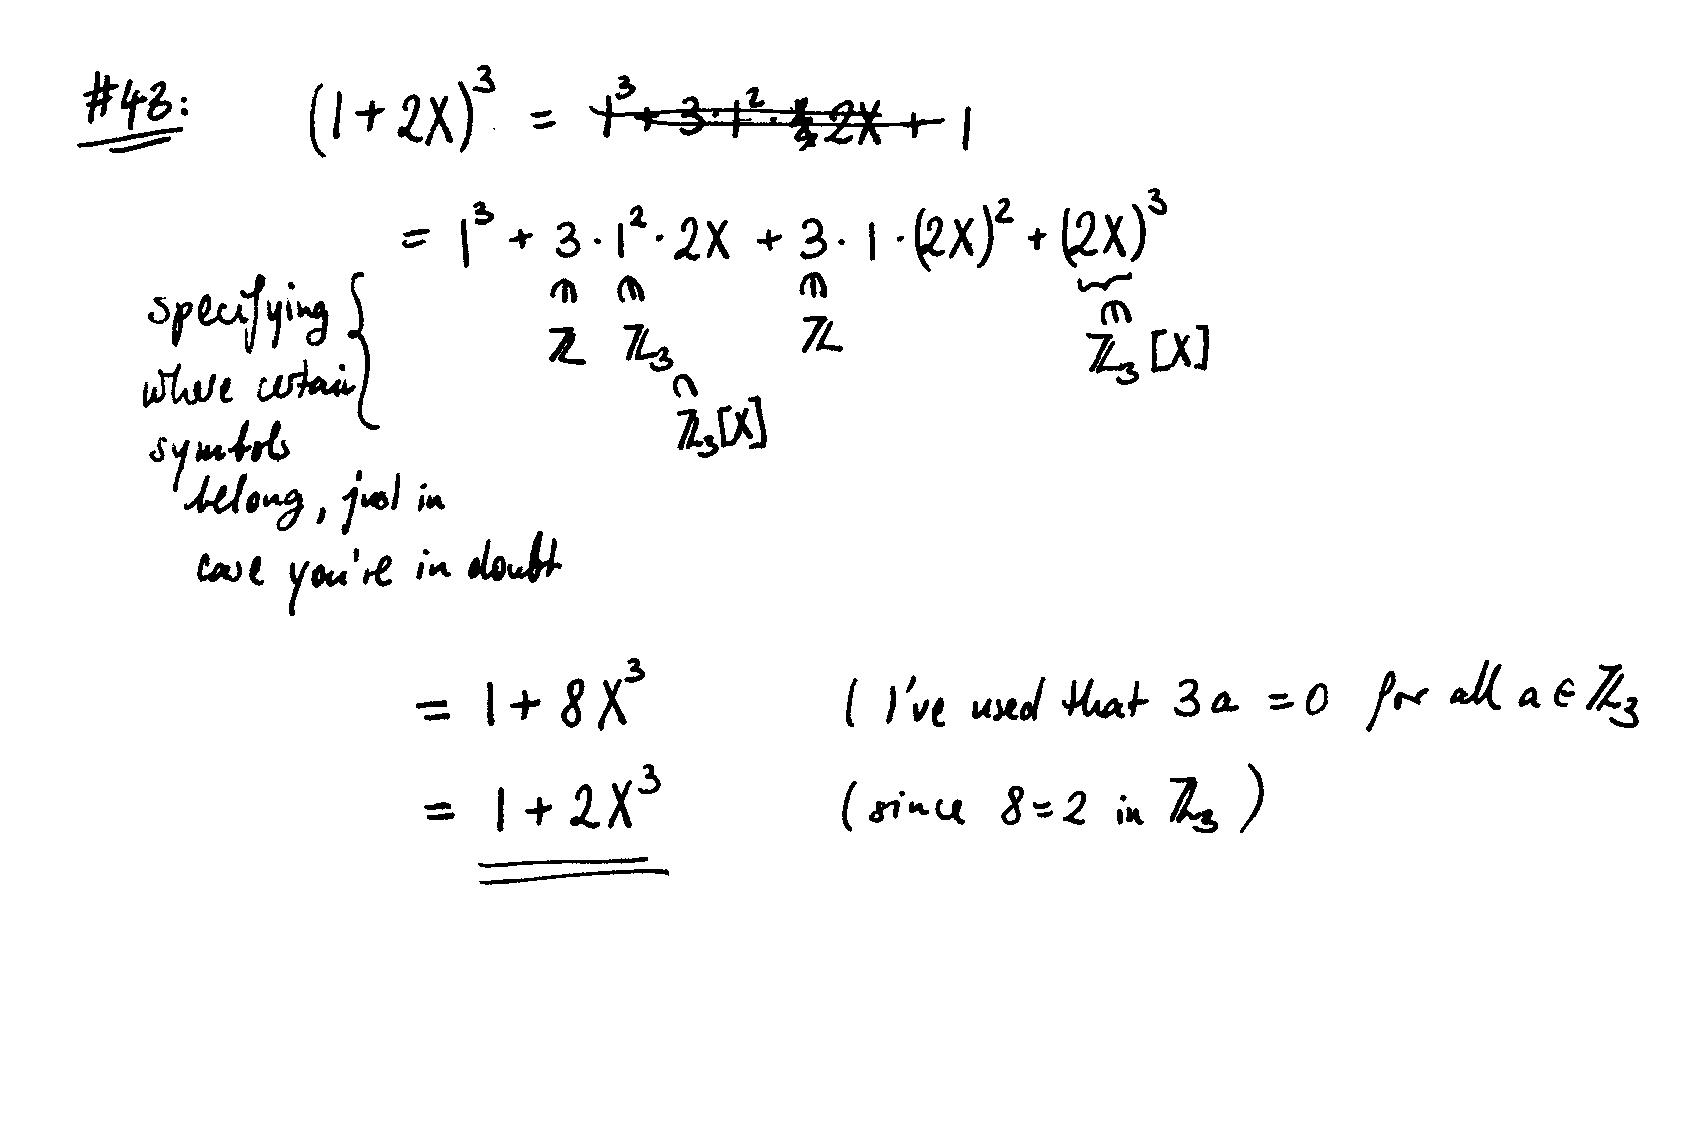 #43: (1+2X)³ = 1³ + 3·1²· 2X + 1
= 1³ + 3·1²·2X + 3·1·(2X)² + (2X)³
∈ ∈ ∈ ∈
ℤ ℤ₃ ℤ ℤ₃[X]
∩
ℤ₃[X]
specifying {
where certain
symbols
belong, just in
case you're in doubt
= 1 + 8X³ ( I've used that 3a = 0 for all a ∈ ℤ₃
= 1 + 2X³ (since 8=2 in ℤ₃)